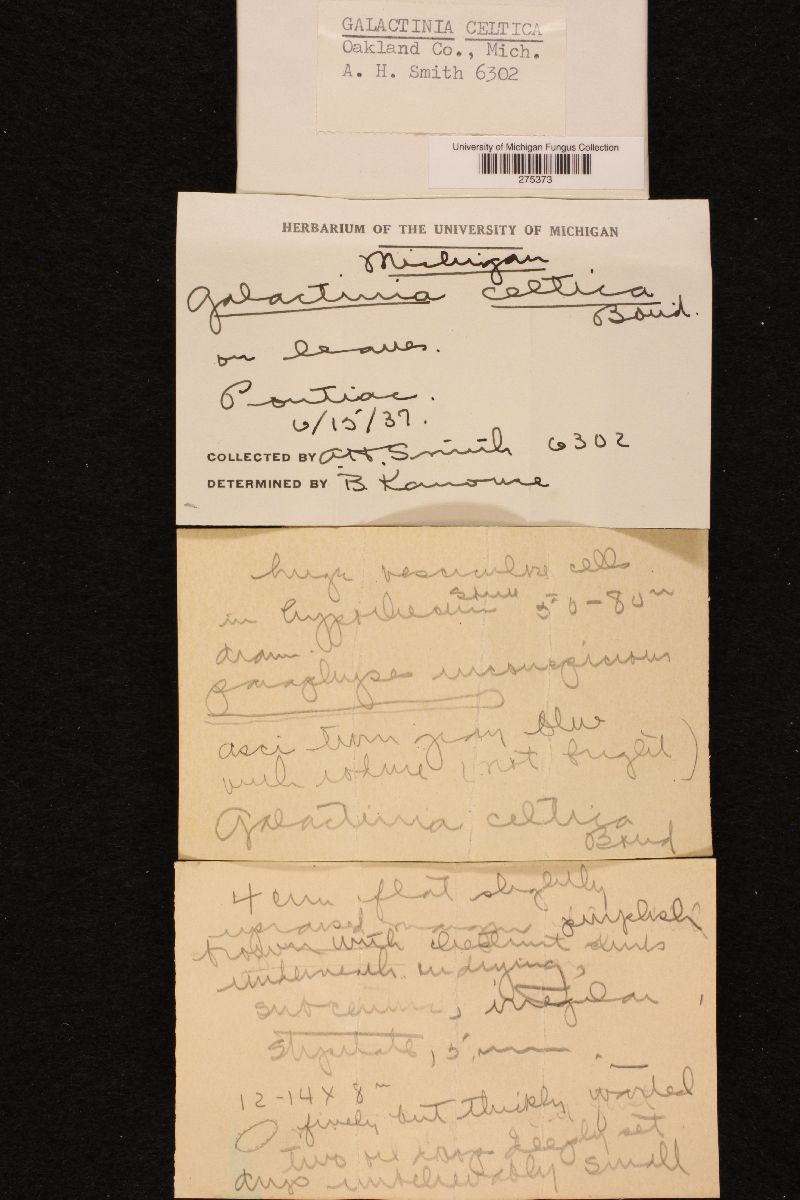 GALACTINIA CELTICA
Oakland Co., Mich.
A. H. Smith 6302
University of Michigan Fungus Collection
275373
HERBARIUM OF THE UNIVERSITY OF MICHIGAN
Michigan
Galactinia celtica
Boud.
on leaves.
Pontiac.
6/15/37.
COLLECTED BY A.H. Smith 6302
DETERMINED BY B. Kanouse
huge vesiculose cells
in hypothecium some 50-80µ
diam.
paraphyses inconspicious
asci turn gray blue
with iodine (not bright)
Galactinia celtica
Boud
4 cm flat slightly
upraised margin purplish
brown with chestnut tints
underneath in drying,
irregular,
stipitate, 5 mm.
12-14 x 8µ
finely but thickly warted
two oil drops deeply set
unbelievably small